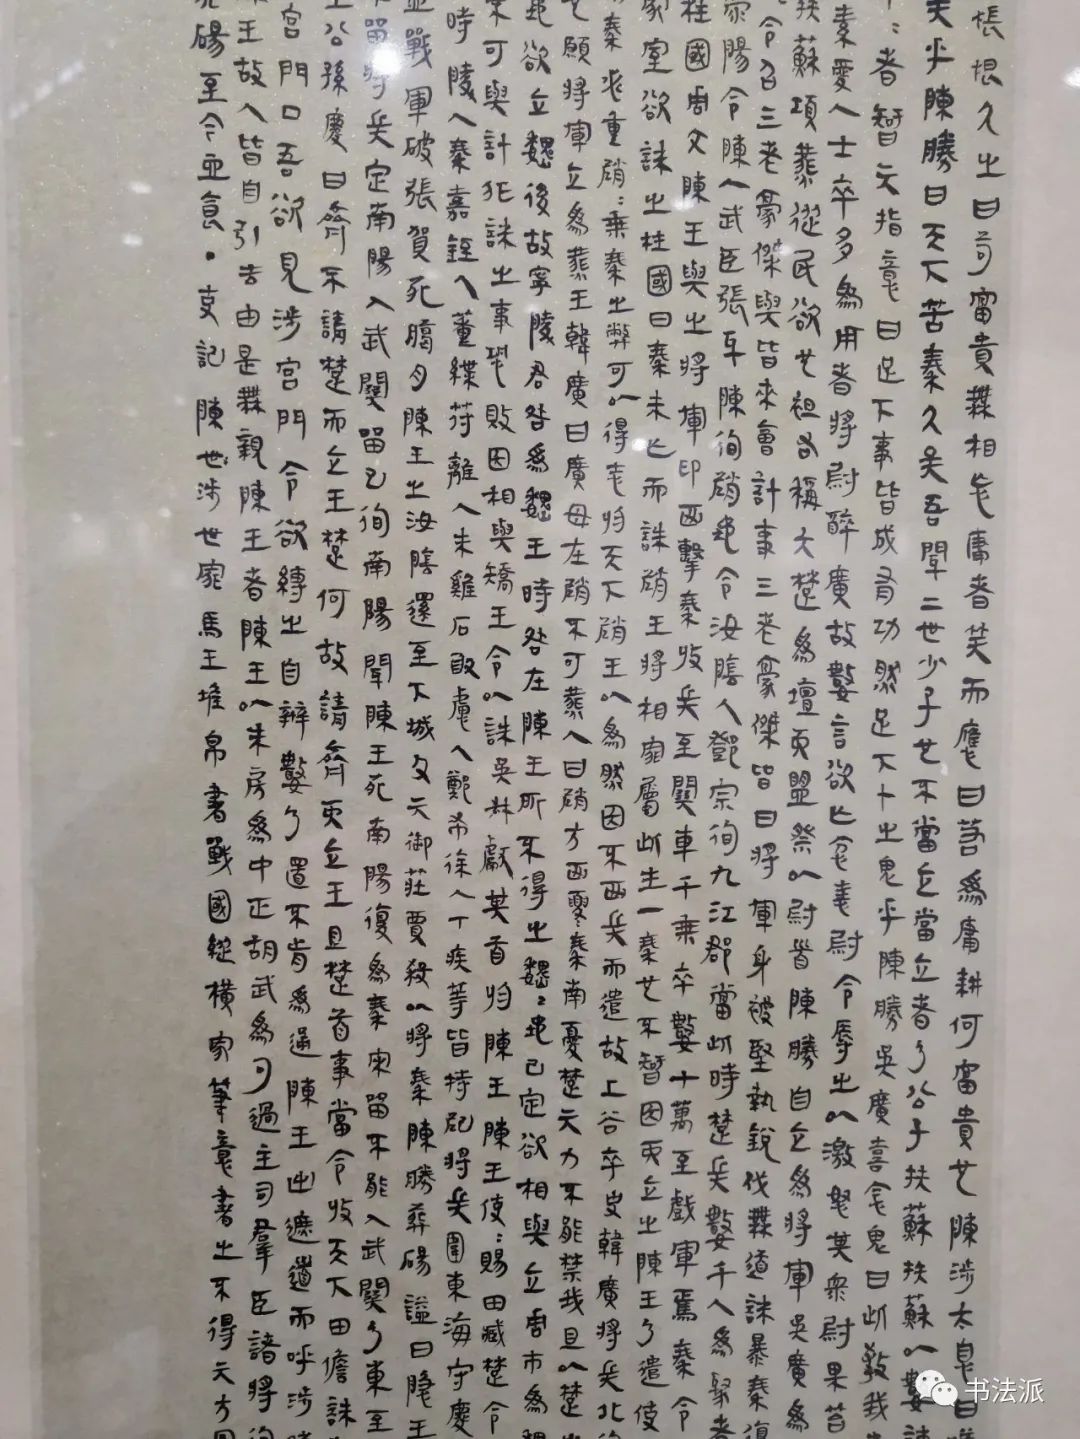 悵恨久之曰苟富貴無相忘庸者笑而應曰若為庸耕何富貴也陳涉太息曰
矣乎陳勝曰天下苦秦久矣吾聞二世少子也不當立當立者乃公子扶蘇扶蘇以數諫
者智其指意曰足下事皆成有功然足下卜之鬼乎陳勝吳廣喜念鬼曰此教我
素愛人士卒多為用者將尉醉廣故數言欲亡忿恚尉令辱之以激怒其眾尉果笞
扶蘇項燕從民欲也袒右稱大楚為壇而盟祭以尉首陳勝自立為將軍吳廣為
令召三老豪傑與皆來會計事三老豪傑皆曰將軍身被堅執銳伐無道誅暴秦復
陽令陳人武臣張耳陳徇趙地令汝陰人鄧宗徇九江郡當此時楚兵數千人為聚者
柱國周文陳王與之將軍印西擊秦收兵至關車千乘卒數十萬至戲軍焉秦令
家室欲誅之柱國曰秦未亡而誅趙王將相家屬此生一秦也不智因而立之陳王乃遣使
秦必重趙:乘秦之弊可以得志於天下趙王以為然因不西兵而遣故上谷卒史韓廣將兵北徇
也願將軍立為燕王韓廣曰廣母在趙不可燕人曰趙方西憂秦南憂楚其力不能禁我且以楚之
地欲立魏後故寧陵君咎為魏王時咎在陳王所不得之魏:地已定欲相與立周市為魏
可與計非誅之事恐敗因相與矯王令以誅吳叔獻其首於陳王陳王使:賜田臧楚令
時陵人秦嘉銍人董緤苻離人朱雞石取慮人鄭布徐人丁疾等皆特起將兵圍東海守慶
監戰軍破張賀死臘月陳王之汝陰還至下城父其御莊賈殺以將秦陳勝葬碭謚曰隱王
留將兵定南陽入武關留已徇南陽聞陳王死南陽復為秦宋留不能入武關乃東至
公孫慶曰齊不請楚而立王楚何故請齊而立王且楚首事當令於天下田儋誅
宮門曰吾欲見涉宮門令欲縛之自辯數乃置不肯為通陳王出遮道而呼涉
陳王故人皆自引去由是無親陳王者陳王以朱房為中正胡武為司過主司群臣諸將徇
碭至今血食。史記陳涉世家馬王堆帛書戰國縱橫家筆意書之不得其方圓
书法派